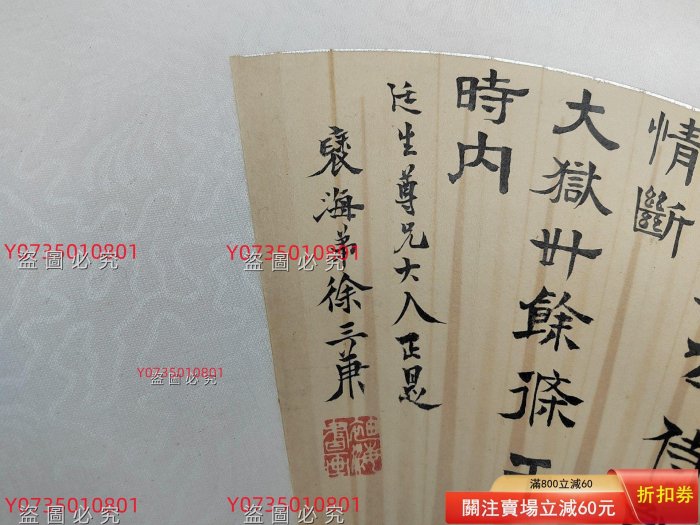 情斷
大獄卅餘條
時内
廷生尊兄大人正是
襃海弟徐三庚
Y0735010801
盜圖必究
Y0735010801
盜圖必究
Y0735010801
盜圖必究
Y0735010801
盜圖必究
Y0735010801
盜圖必究
Y0735010801
盜圖必究
Y0735010801
盜圖必究
滿800立減60
關注賣場立減60元
折扣券